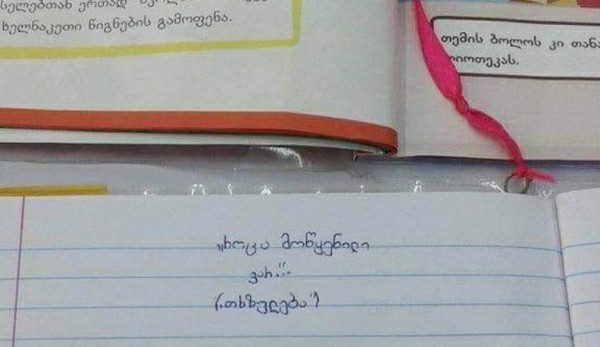 სელებთან ერთად
ხელნაკეთი წიგნების გამოფენა.
თემის ბოლოს კი თანა
ლიოთეკას.
„როცა მოწყენილი
ვარ...“
(„თხზულება“)